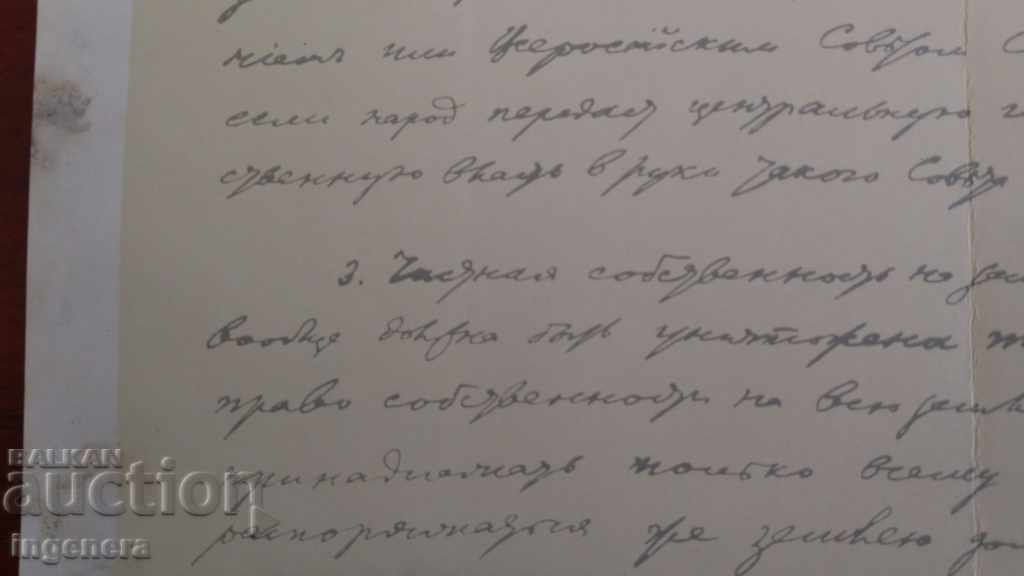 нием или Всеросийским Советом С
если народ передаст центральную г
ственную власть в руки такого Совета
3. Частная собственность на зем
вообще должна быть уничтожена т
право собственности на всю землю
принадлежать только всему
распоряжаться же землею дол
BALKAN
auction
ingenera